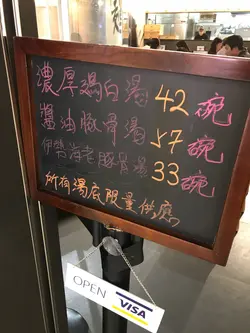 濃厚鷄白湯 42碗
醬油豚骨湯 57碗
伊勢海老豚骨湯 33碗
所有湯底限量供應
OPEN
VISA